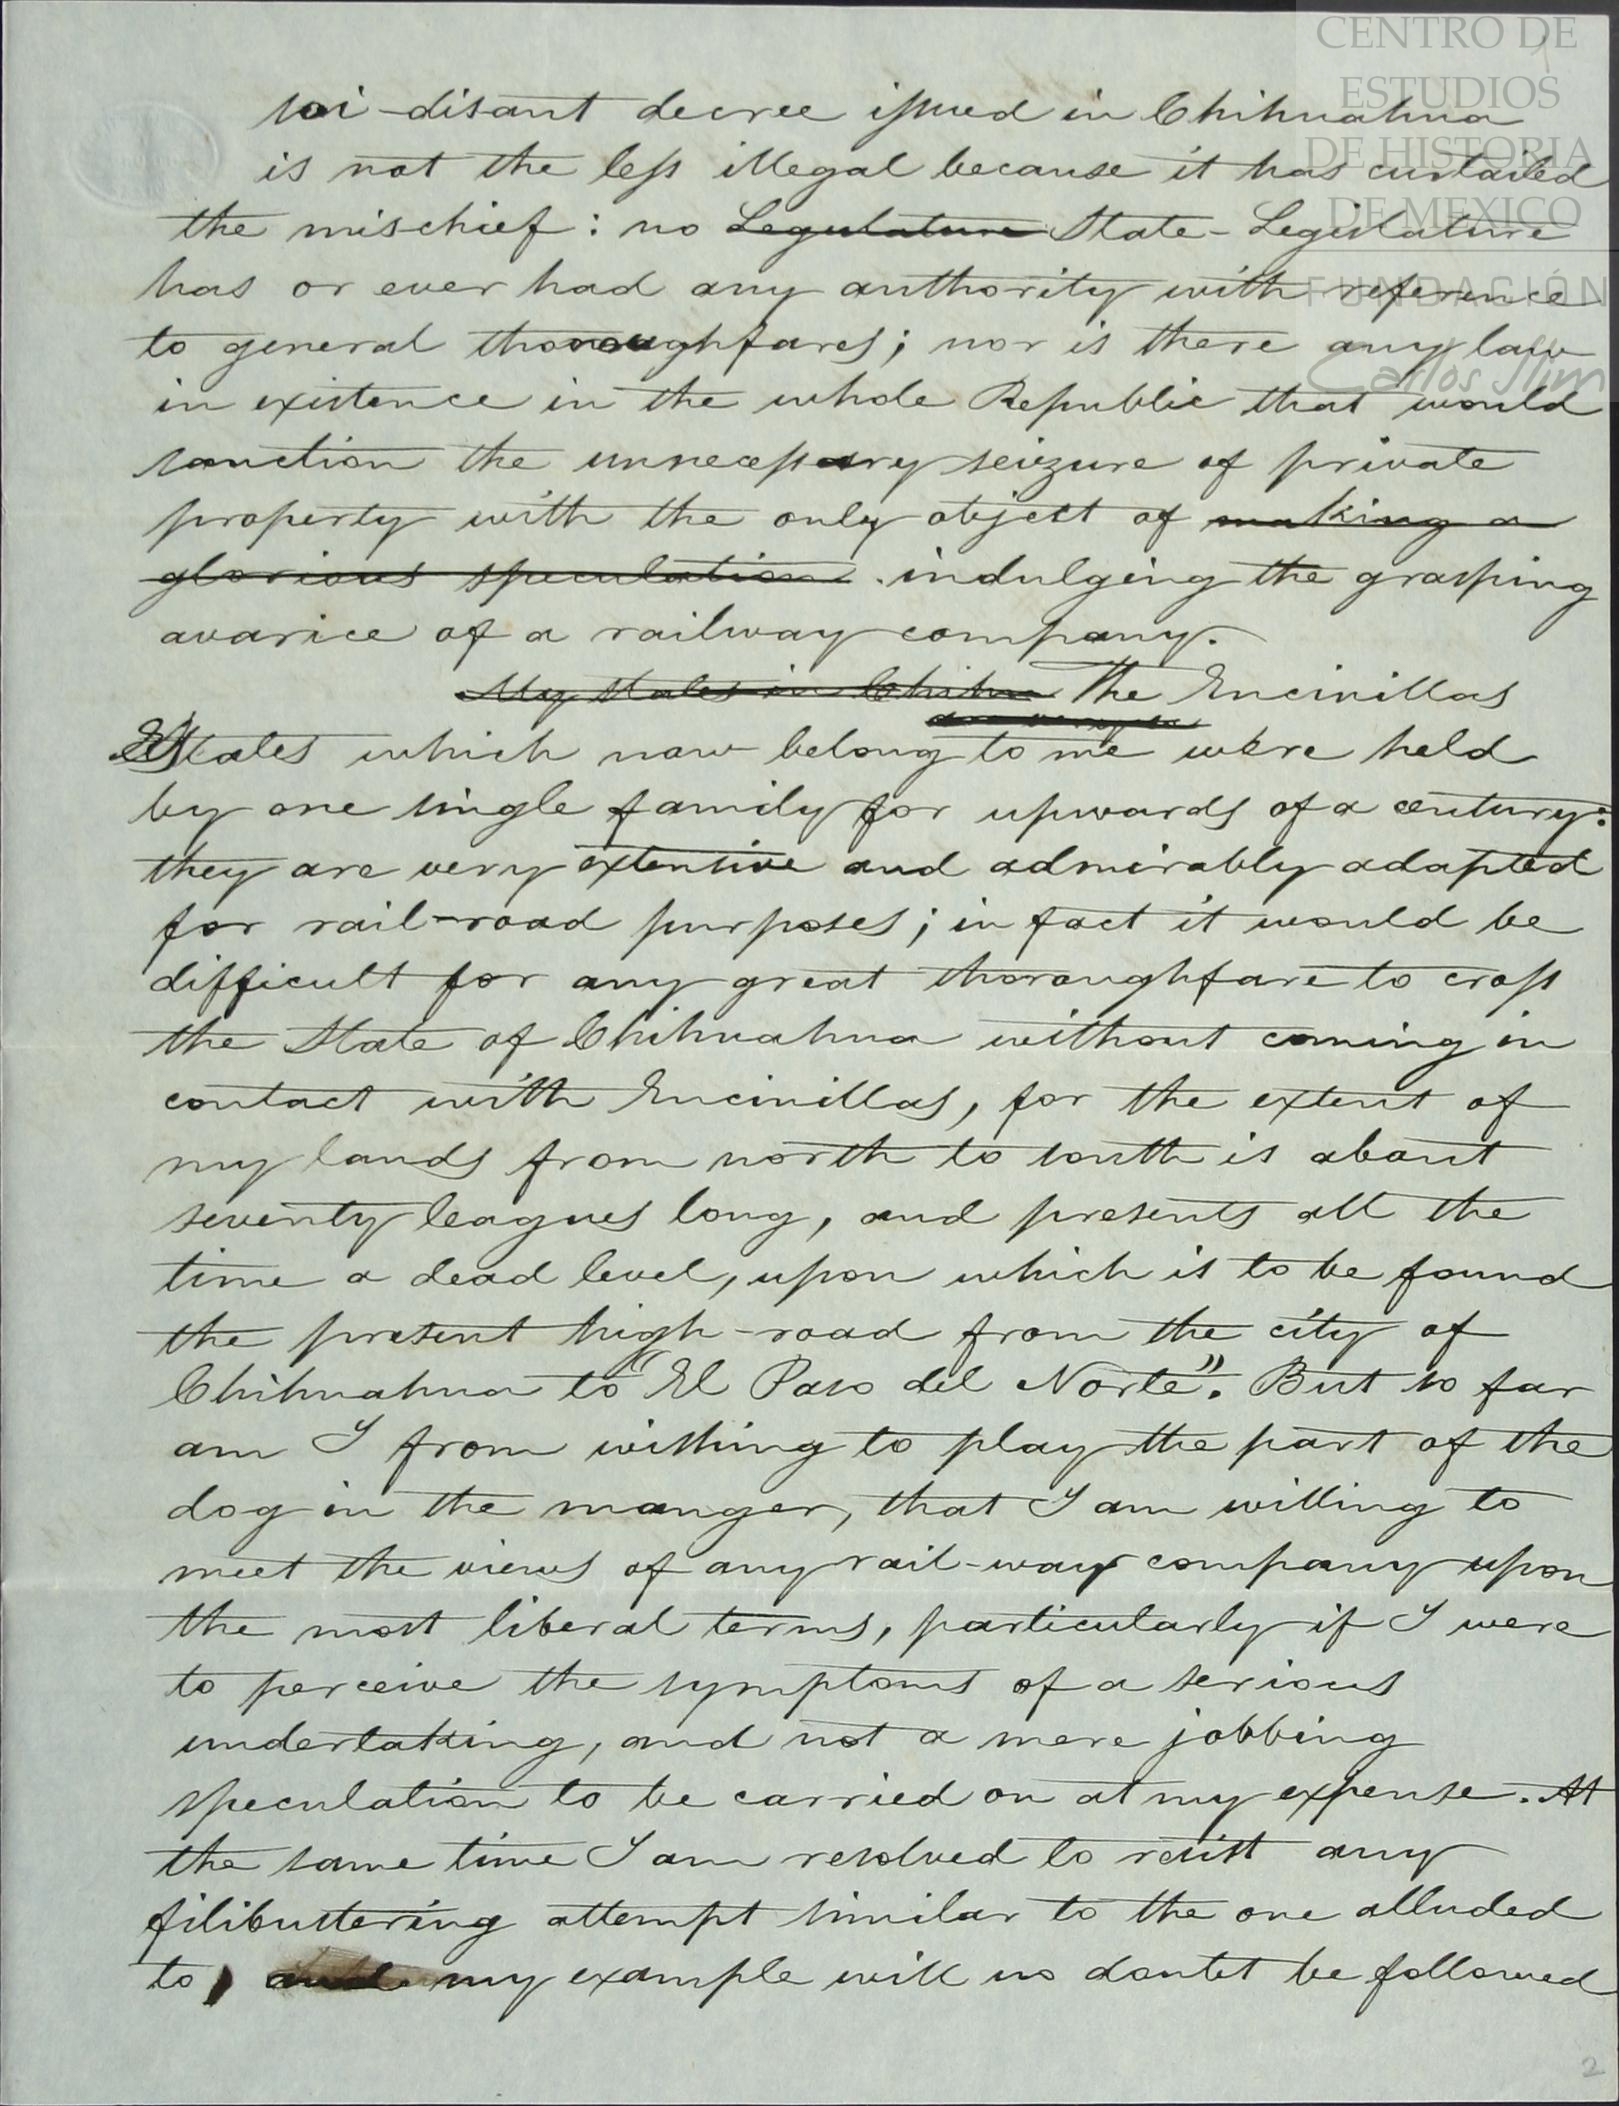 CENTRO DE
ESTUDIOS
DE HISTORIA
DE MEXICO
FUNDACIÓN
Carlos Slim
soi-disant decree issued in Chihuahua
is not the less illegal because it has curtailed
the mischief: no Legislature State-Legislature
has or ever had any authority with reference
to general thoroughfares; nor is there any law
in existence in the whole Republic that would
sanction the unnecessary seizure of private
property with the only object of making a
glorious speculation indulging the grasping
avarice of a railway company.
My states in Chihu The Encinillas
Estates which now belong to me were held
by one single family for upwards of a century:
they are very extensive and admirably adapted
for rail-road purposes; in fact it would be
difficult for any great thoroughfare to cross
the State of Chihuahua without coming in
contact with Encinillas, for the extent of
my lands from north to south is about
seventy leagues long, and presents all the
time a dead level, upon which is to be found
the present high-road from the city of
Chihuahua to "El Paso del Norte". But so far
am I from wishing to play the part of the
dog in the manger, that I am willing to
meet the views of any rail-way company upon
the most liberal terms, particularly if I were
to perceive the symptoms of a serious
undertaking, and not a mere jobbing
speculation to be carried on at my expense. At
the same time I am resolved to resist any
filibustering attempt similar to the one alluded
to, and my example will no doubt be followed
2